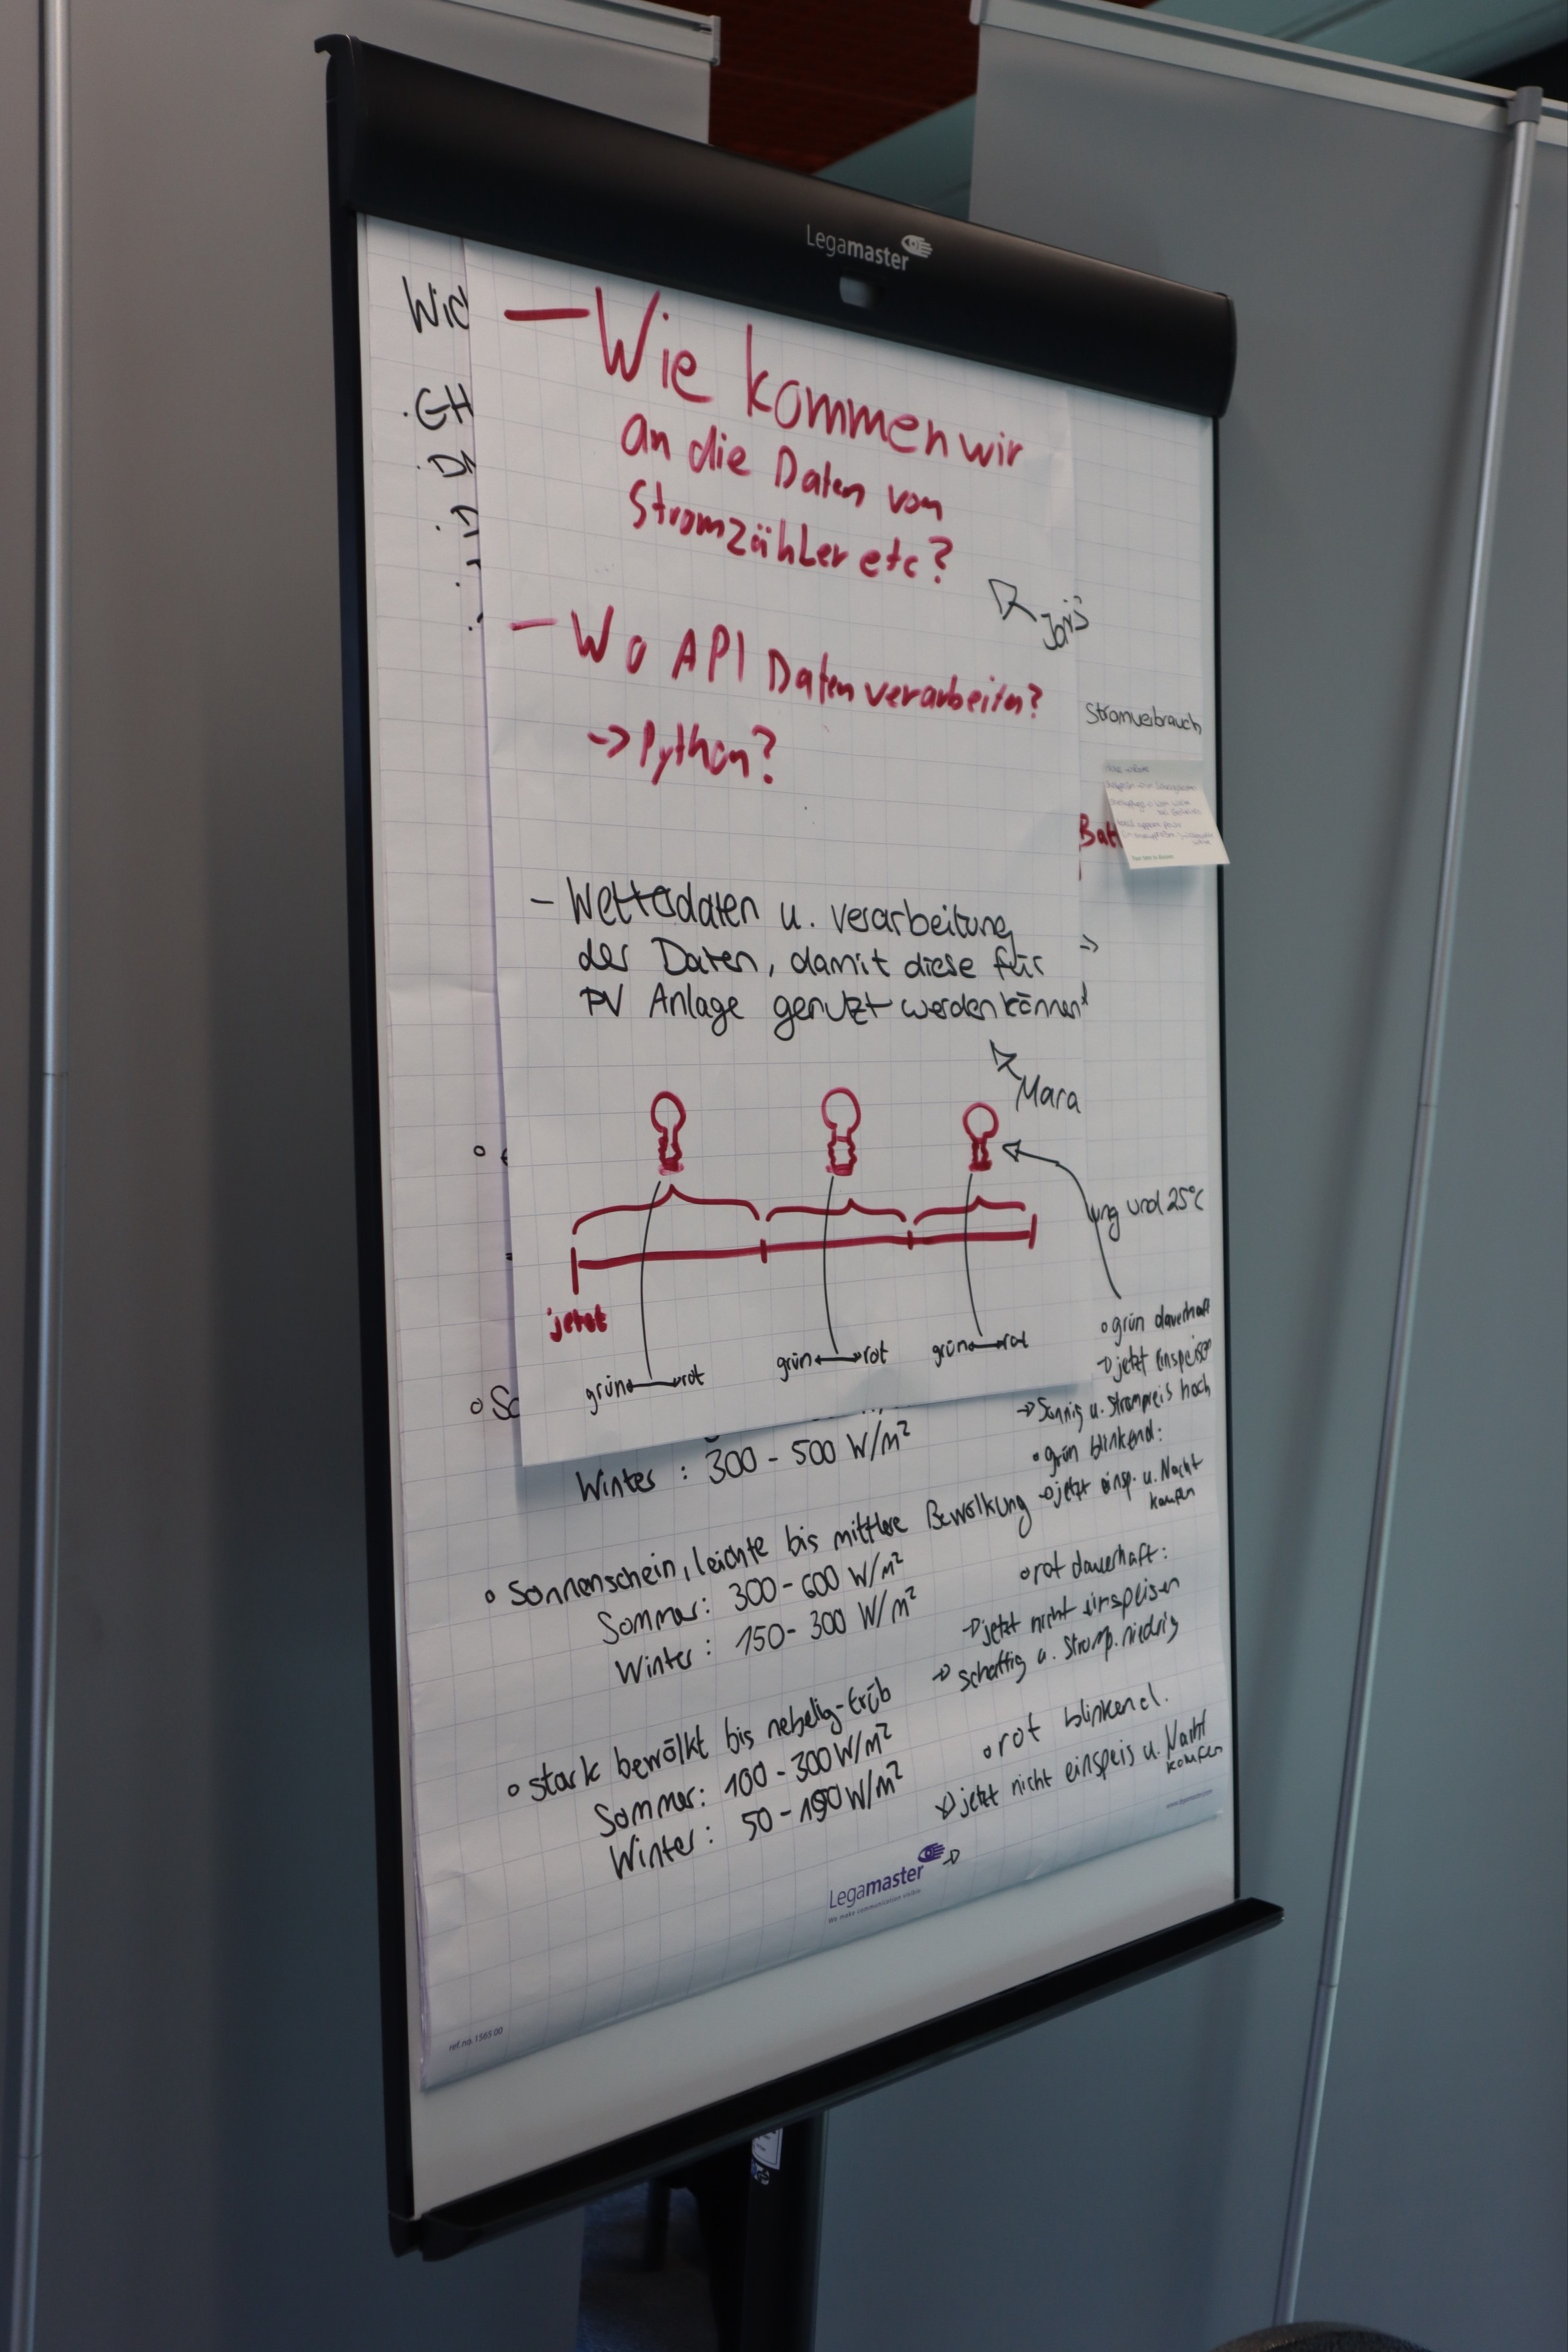 Legamaster
– Wie kommen wir
an die Daten vom
Stromzähler etc?
Joris
– Wo API Daten verarbeiten?
-> Python?
Stromverbrauch
– Wetterdaten u. verarbeitung
der Daten, damit diese für
PV Anlage genutzt werden können
Mara
jetzt
grün rot
grün rot
grün rot
ung und 25°C
Winter : 300 - 500 W/m²
° Sonnenschein, leichte bis mittlere Bewölkung
Sommer: 300 - 600 W/m²
Winter : 150 - 300 W/m²
° stark bewölkt bis nebelig-trüb
Sommer: 100 - 300 W/m²
Winter : 50 - 150 W/m²
° grün dauerhaft
-> jetzt einspeisen
-> Sonnig u. Strompreis hoch
° grün blinkend:
-> jetzt einsp. u. Nacht
kaufen
° rot dauerhaft:
-> jetzt nicht einspeisen
-> schattig u. Stromp. niedrig
° rot blinkend.
-> jetzt nicht einspeis u. Nacht
kaufen
Legamaster
We make communication visible
www.legamaster.com
ref.no. 1565 00